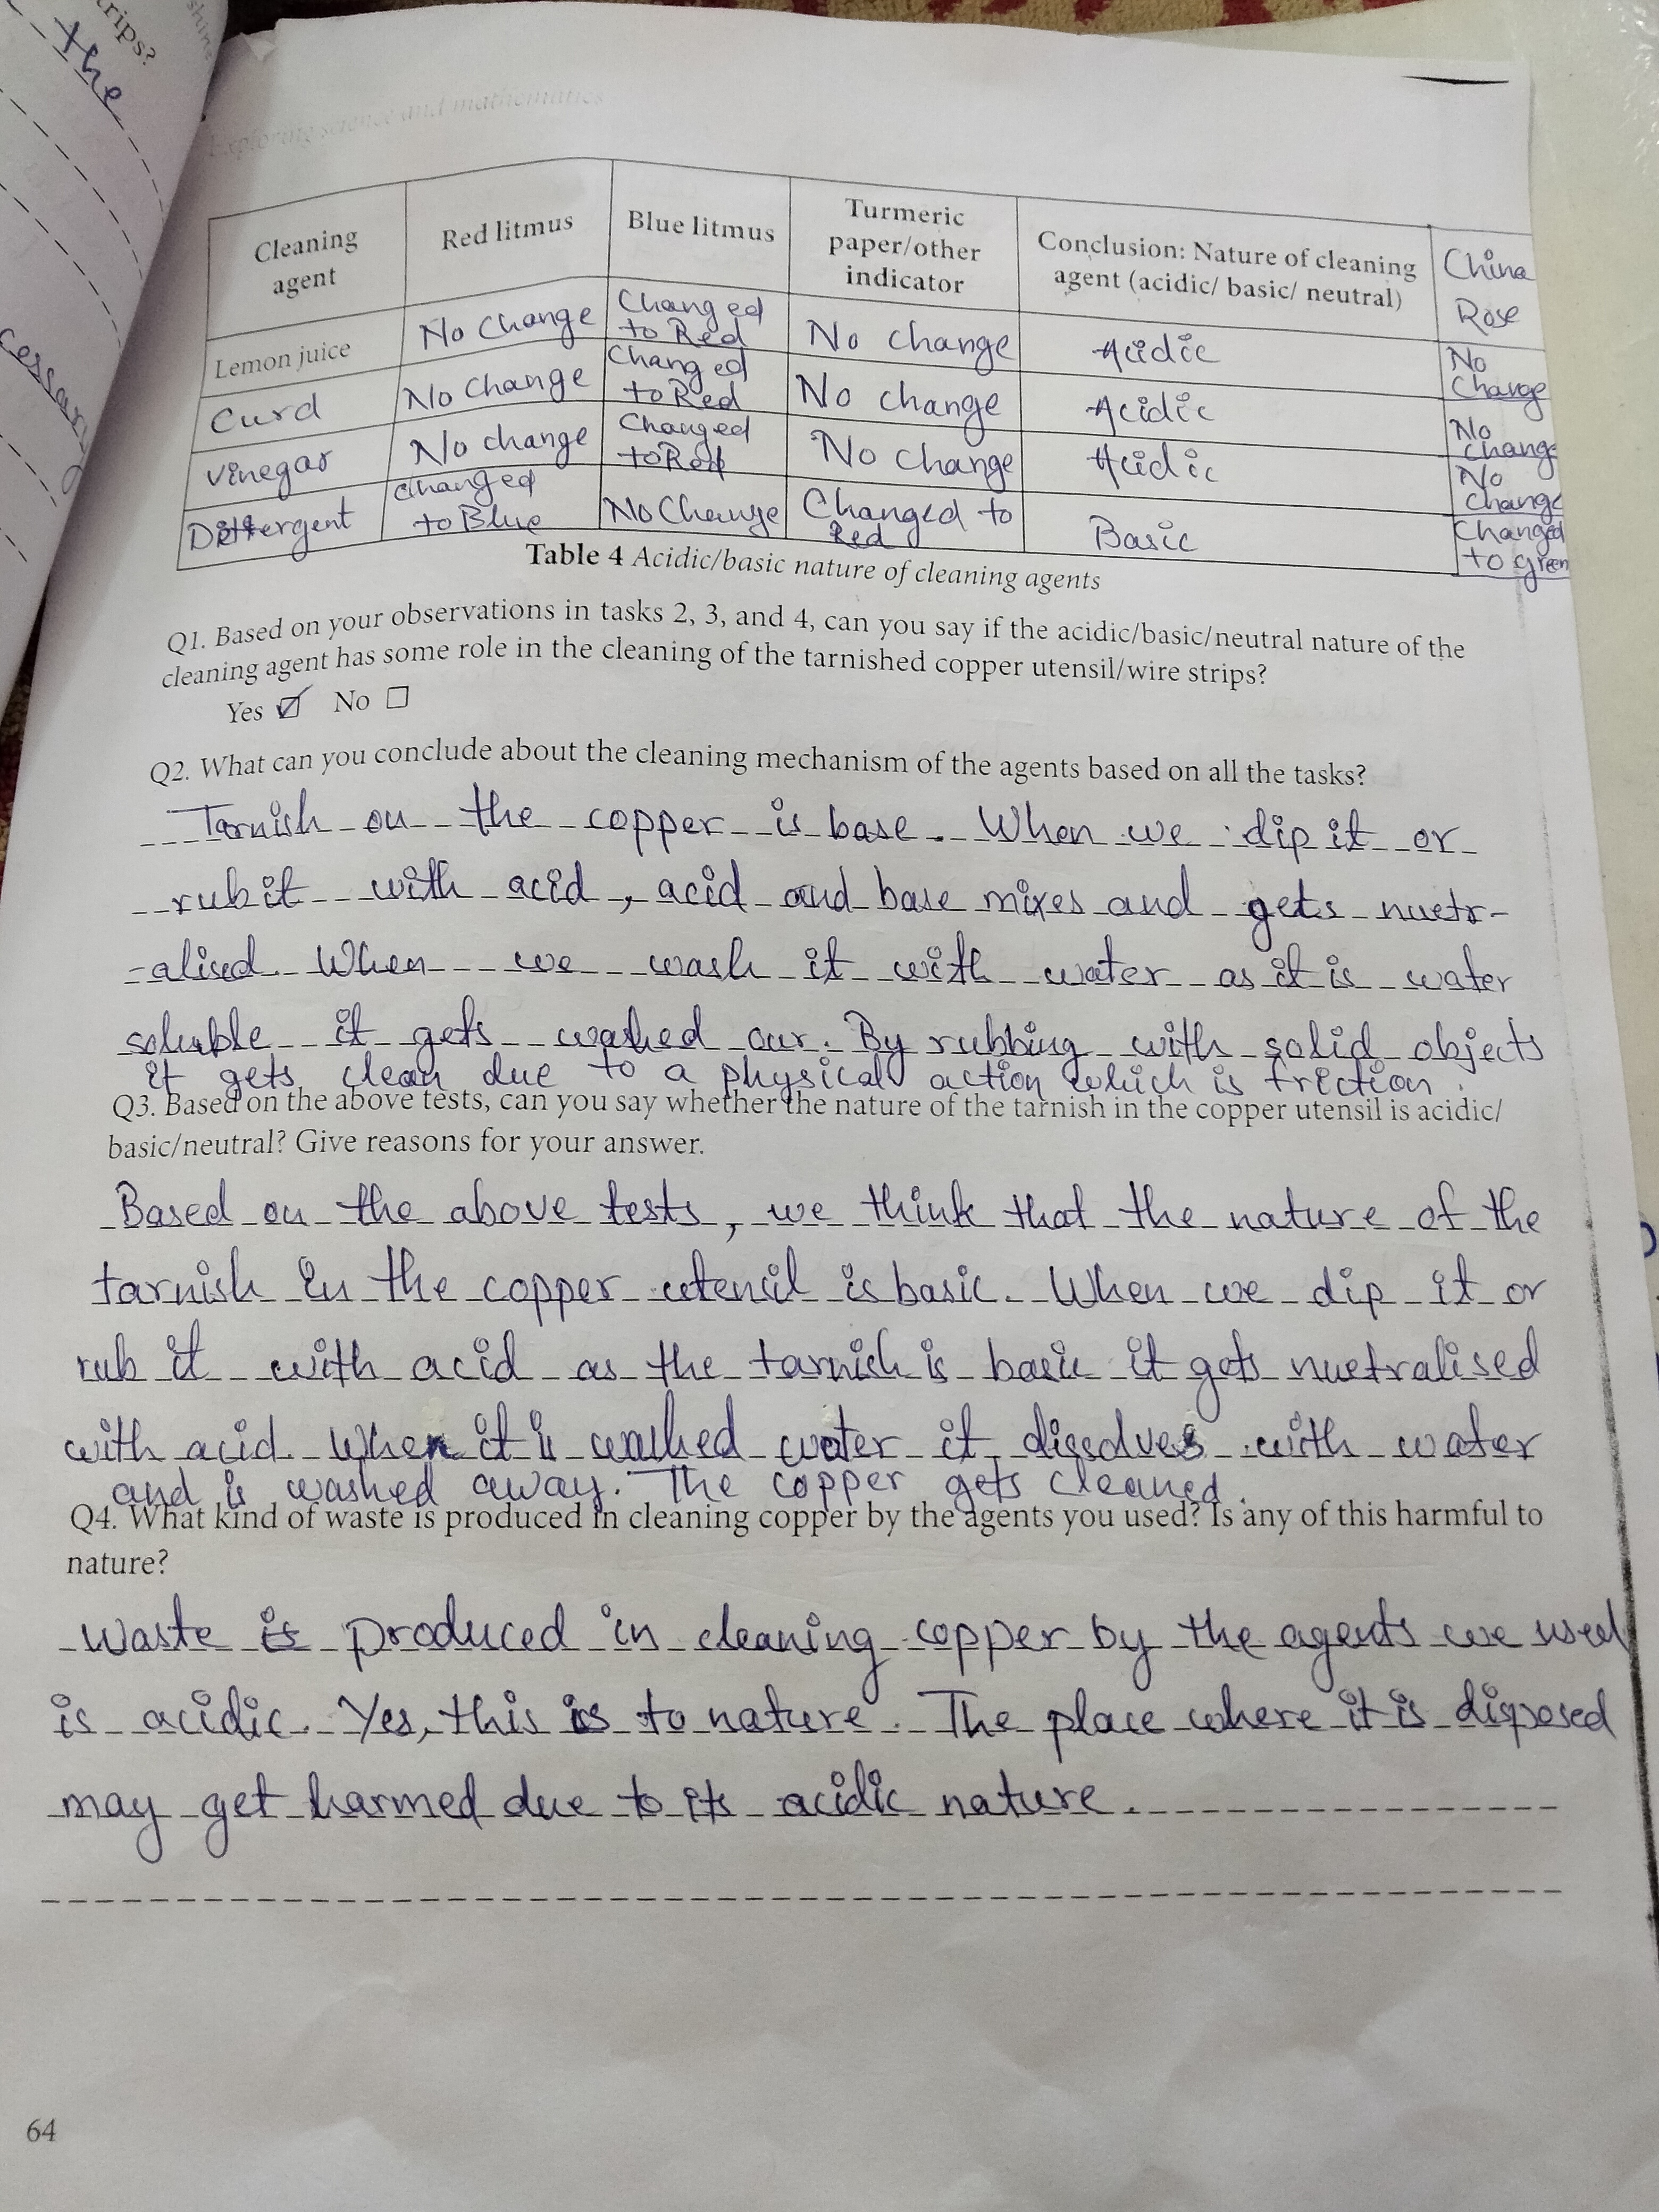 rips?
the
Exploring science and mathematics
Cleaning agent | Red litmus | Blue litmus | Turmeric paper/other indicator | Conclusion: Nature of cleaning agent (acidic/ basic/ neutral) | China Rose
Lemon juice | No Change | Changed to Red | No change | Acidic | No Change
Curd | No Change | Changed to Red | No change | Acidic | No Change
Vinegar | No change | Changed to Red | No Change | Acidic | No Change
Detergent | Changed to Blue | No Change | Changed to Red | Basic | Changed to green
Table 4 Acidic/basic nature of cleaning agents
Q1. Based on your observations in tasks 2, 3, and 4, can you say if the acidic/basic/neutral nature of the
cleaning agent has some role in the cleaning of the tarnished copper utensil/wire strips?
Yes ☑ No ☐
Q2. What can you conclude about the cleaning mechanism of the agents based on all the tasks?
Tarnish on the copper is base. When we dip it or
rub it with acid, acid and base mixes and gets nuetr-
-alised. When we wash it with water as it is water
soluble it gets washed our. By rubbing with solid objects
it gets clean due to a physical action which is friction.
Q3. Based on the above tests, can you say whether the nature of the tarnish in the copper utensil is acidic/
basic/neutral? Give reasons for your answer.
Based on the above tests, we think that the nature of the
tarnish in the copper utensil is basic. When we dip it or
rub it with acid as the tarnish is basic it gets nuetralised
with acid. When it is washed water it dissolves with water
and is washed away. The copper gets cleaned.
Q4. What kind of waste is produced in cleaning copper by the agents you used? Is any of this harmful to
nature?
Waste is produced in cleaning copper by the agents we used
is acidic. Yes, this is to nature. The place where it is disposed
may get harmed due to its acidic nature.
64